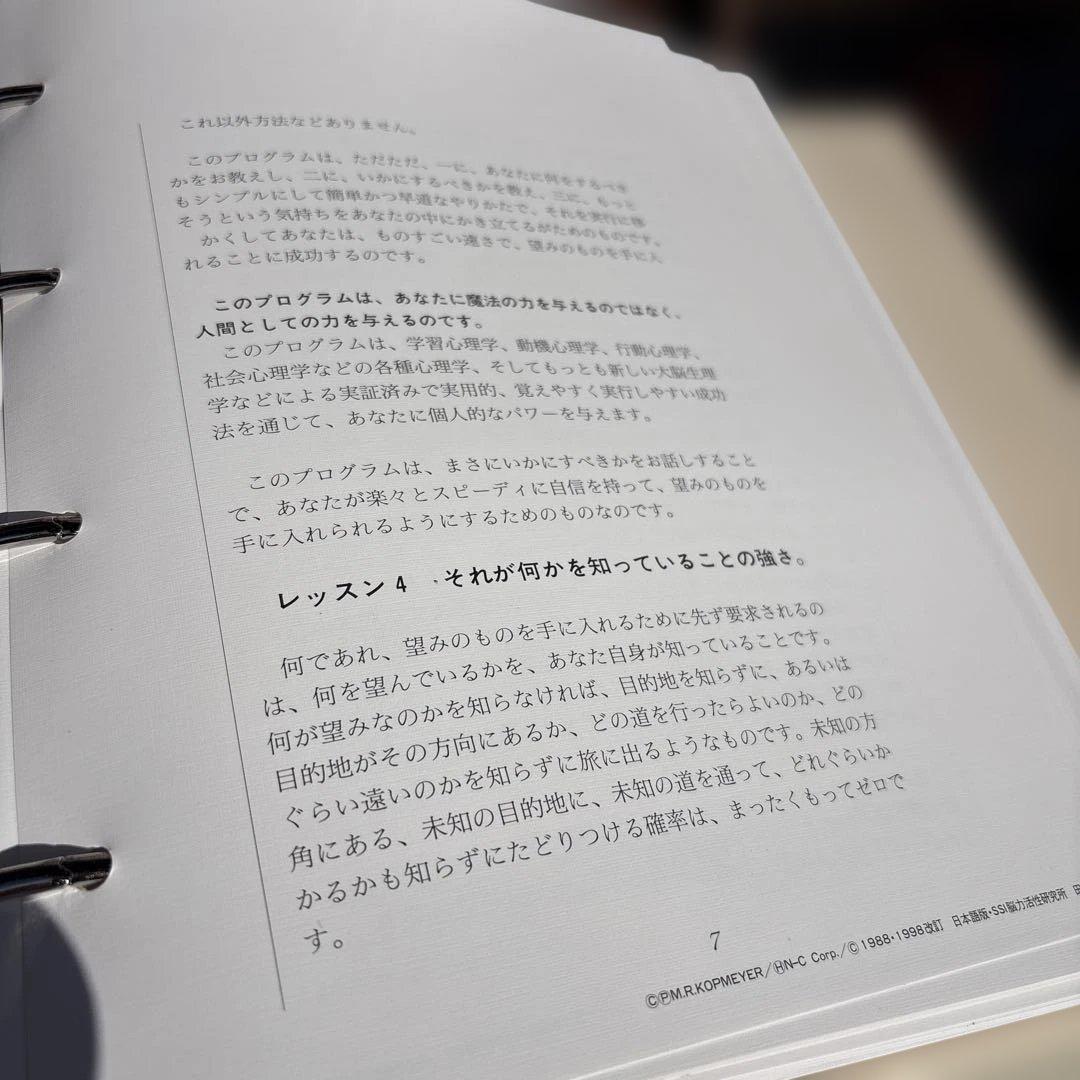 これ以外方法などありません。
このプログラムは、ただただ、一に、あなたに何をするべき
かをお教えし、二に、いかにするべきかを教え、三に、もっと
もシンプルにして簡単かつ早道なやりかたで、それを実行に移
そうという気持ちをあなたの中にかき立てるがためのものです。
かくしてあなたは、ものすごい速さで、望みのものを手に入
れることに成功するのです。
このプログラムは、あなたに魔法の力を与えるのではなく、
人間としての力を与えるのです。
このプログラムは、学習心理学、動機心理学、行動心理学、
社会心理学などの各種心理学、そしてもっとも新しい大脳生理
学などによる実証済みで実用的、覚えやすく実行しやすい成功
法を通じて、あなたに個人的なパワーを与えます。
このプログラムは、まさにいかにすべきかをお話しすること
で、あなたが楽々とスピーディに自信を持って、望みのものを
手に入れられるようにするためのものなのです。
レッスン4 それが何かを知っていることの強さ。
何であれ、望みのものを手に入れるために先ず要求されるの
は、何を望んでいるかを、あなた自身が知っていることです。
何が望みなのかを知らなければ、目的地を知らずに、あるいは
目的地がその方向にあるか、どの道を行ったらよいのか、どの
ぐらい遠いのかを知らずに旅に出るようなものです。未知の方
角にある、未知の目的地に、未知の道を通って、どれぐらいか
かるかも知らずにたどりつける確率は、まったくもってゼロで
す。
7
©ⓅM.R.KOPMEYER/ⒽN-C Corp./©1988・1998改訂 日本語版・SSI脳力活性研究所 田